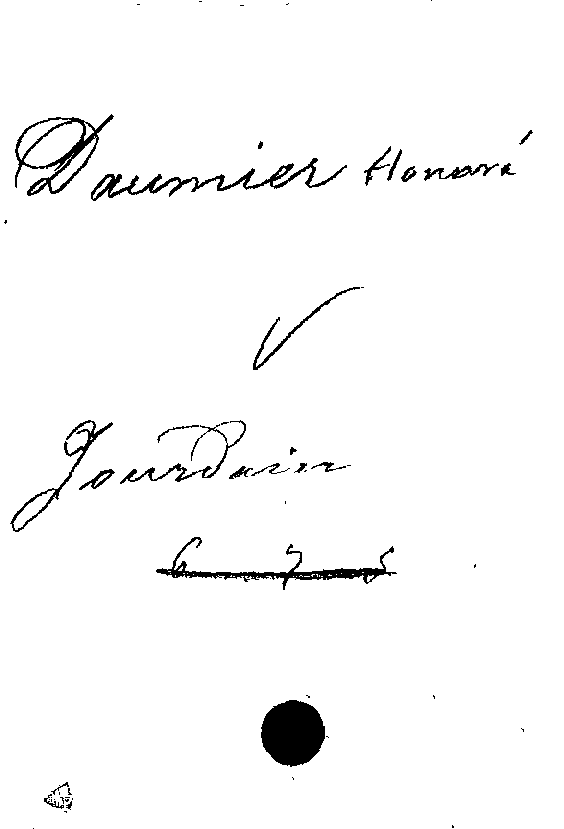 Daumier Honoré
✓
Jourdain
6 7 5